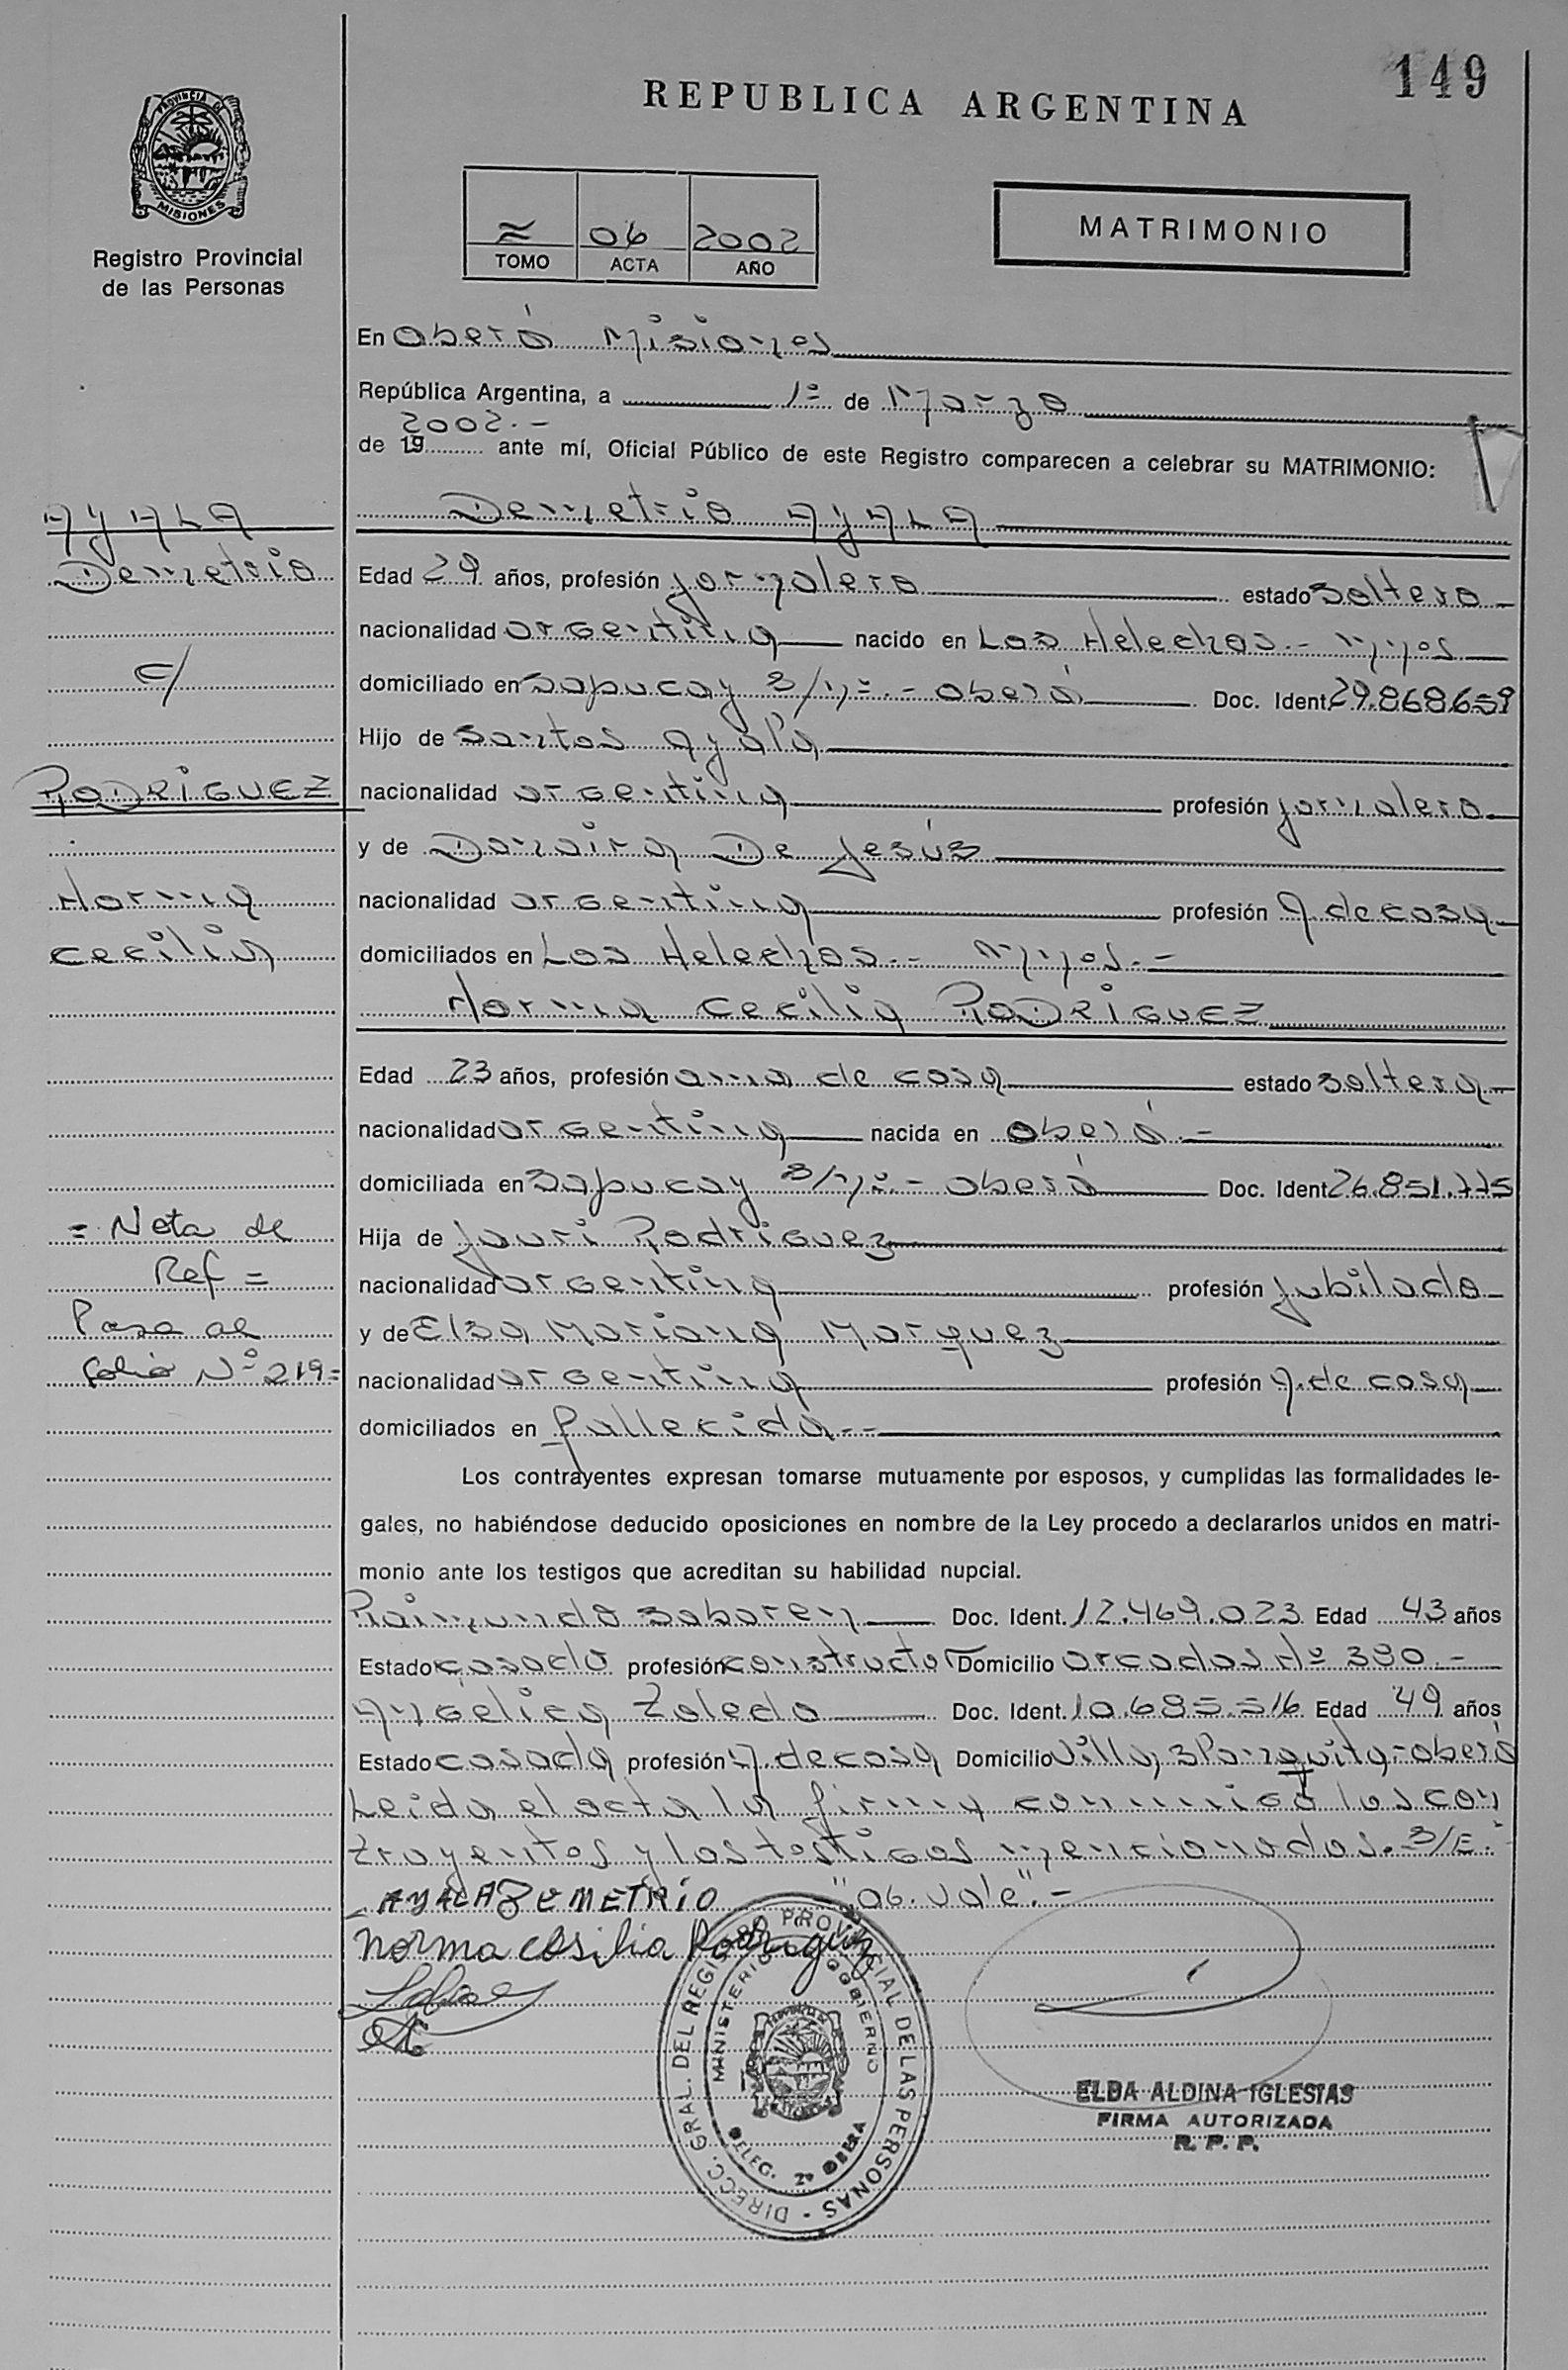 149
REPUBLICA ARGENTINA
PROVINCIA DE
MISIONES
Registro Provincial
de las Personas
06 2002
TOMO ACTA AÑO
MATRIMONIO
En Oberá Misiones
República Argentina, a 1º de Marzo
2002.-
de 19 ante mí, Oficial Público de este Registro comparecen a celebrar su MATRIMONIO:
AYALA
Demetrio
c/
RODRIGUEZ
Norma
Cecilia
= Nota de
Ref =
Pasa al
folio Nº 219=
Demetrio AYALA
Edad 29 años, profesión jornalero estado soltero
nacionalidad argentina nacido en Los Helechos.- Mnes
domiciliado en Sapucay s/nº.- Oberá Doc. Ident. 29.868.659
Hijo de Santos Ayala
nacionalidad argentina profesión jornalero
y de Donaira De Jesús
nacionalidad argentina profesión A. de casa
domiciliados en Los Helechos.- Mnes.-
Norma Cecilia RODRIGUEZ
Edad 23 años, profesión ama de casa estado soltera
nacionalidad argentina nacida en Oberá.-
domiciliada en Sapucay s/nº.- Oberá Doc. Ident. 26.851.775
Hija de Jauri Rodriguez
nacionalidad argentina profesión jubilado
y de Elsa Mariana Marquez
nacionalidad argentina profesión A. de casa
domiciliados en fallecida.--
Los contrayentes expresan tomarse mutuamente por esposos, y cumplidas las formalidades le-
gales, no habiéndose deducido oposiciones en nombre de la Ley procedo a declararlos unidos en matri-
monio ante los testigos que acreditan su habilidad nupcial.
Raimundo Saboren Doc. Ident. 12.469.023 Edad 43 años
Estado casado profesión constructor Domicilio Arcadas Nº 380.-
Angelica Zoledo Doc. Ident. 10.685.516 Edad 49 años
Estado casada profesión A. de casa Domicilio Villa Blanquita-Oberá
Leida el acta la firma conmigo los con
trayentes y los testigos mencionados. S/E.
"06. Vale".-
AYALA DEMETRIO
Norma Cesilia Rodriguez
DIRECC. GRAL. DEL REGISTRO PROVINCIAL DE LAS PERSONAS -
MINISTERIO GOBIERNO
DELEG. 2ª OBERA
ELBA ALDINA IGLESIAS
FIRMA AUTORIZADA
R. P. P.